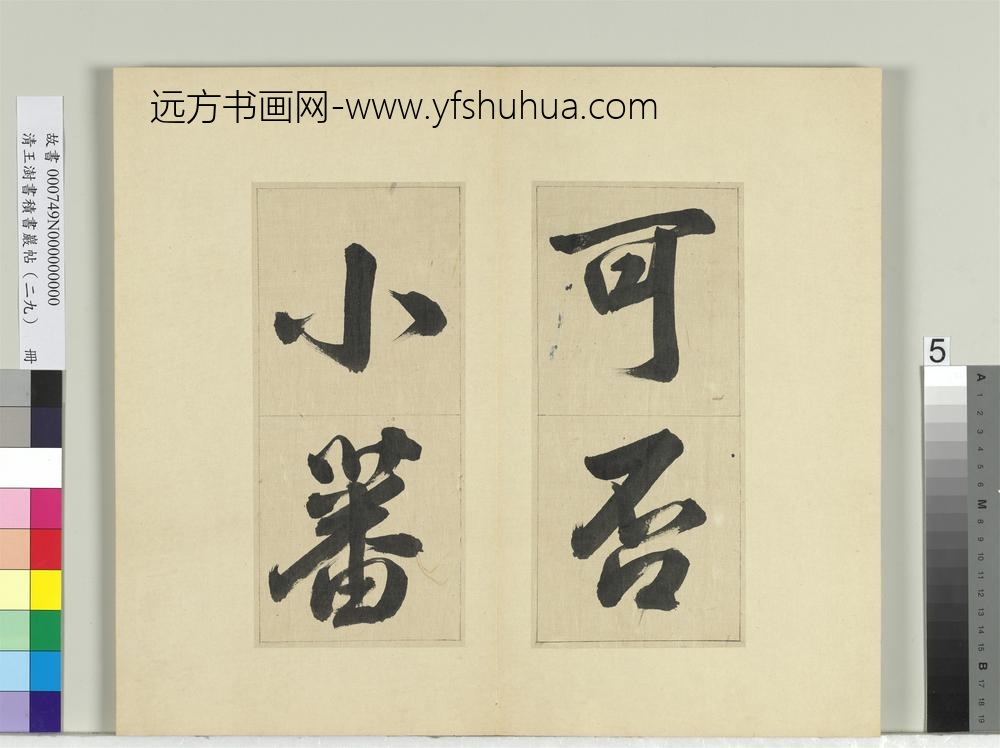 远方书画网-www.yfshuhua.com
可否
小番
故書 000749N000000000
清王澍書積書巖帖（二九） 冊
5
A
1
2
3
4
5
6
M
8
9
10
11
12
13
14
15
B
17
18
19